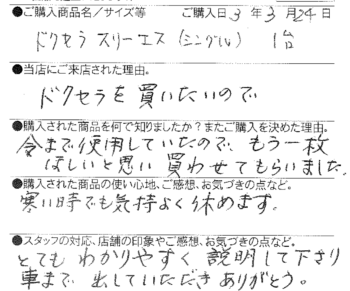 ●ご購入商品名／サイズ等 ご購入日 3 年 3 月 24 日
ドクセラ スリーエス (シングル) 1台
●当店にご来店された理由。
ドクセラを買いたいので
●購入された商品を何で知りましたか？またご購入を決めた理由。
今まで使用していたので、もう一枚
ほしいと思い 買わせてもらいました。
●購入された商品の使い心地、ご感想、お気づきの点など。
寒い時でも気持よく休めます。
●スタッフの対応、店舗の印象やご感想、お気づきの点など。
とてもわかりやすく説明して下さり
車まで出していただきありがとう。